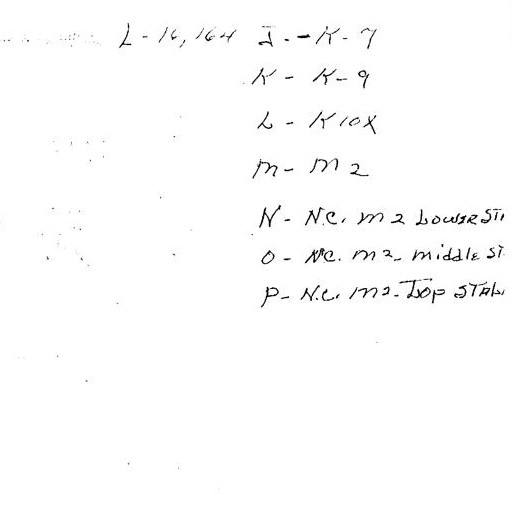 L - 16,164 J. - K - 7
K - K - 9
L - K10X
M - M2
N - N.C. M2 Lower
O - N.C. M2 - middle
P - N.C. M2 - Top